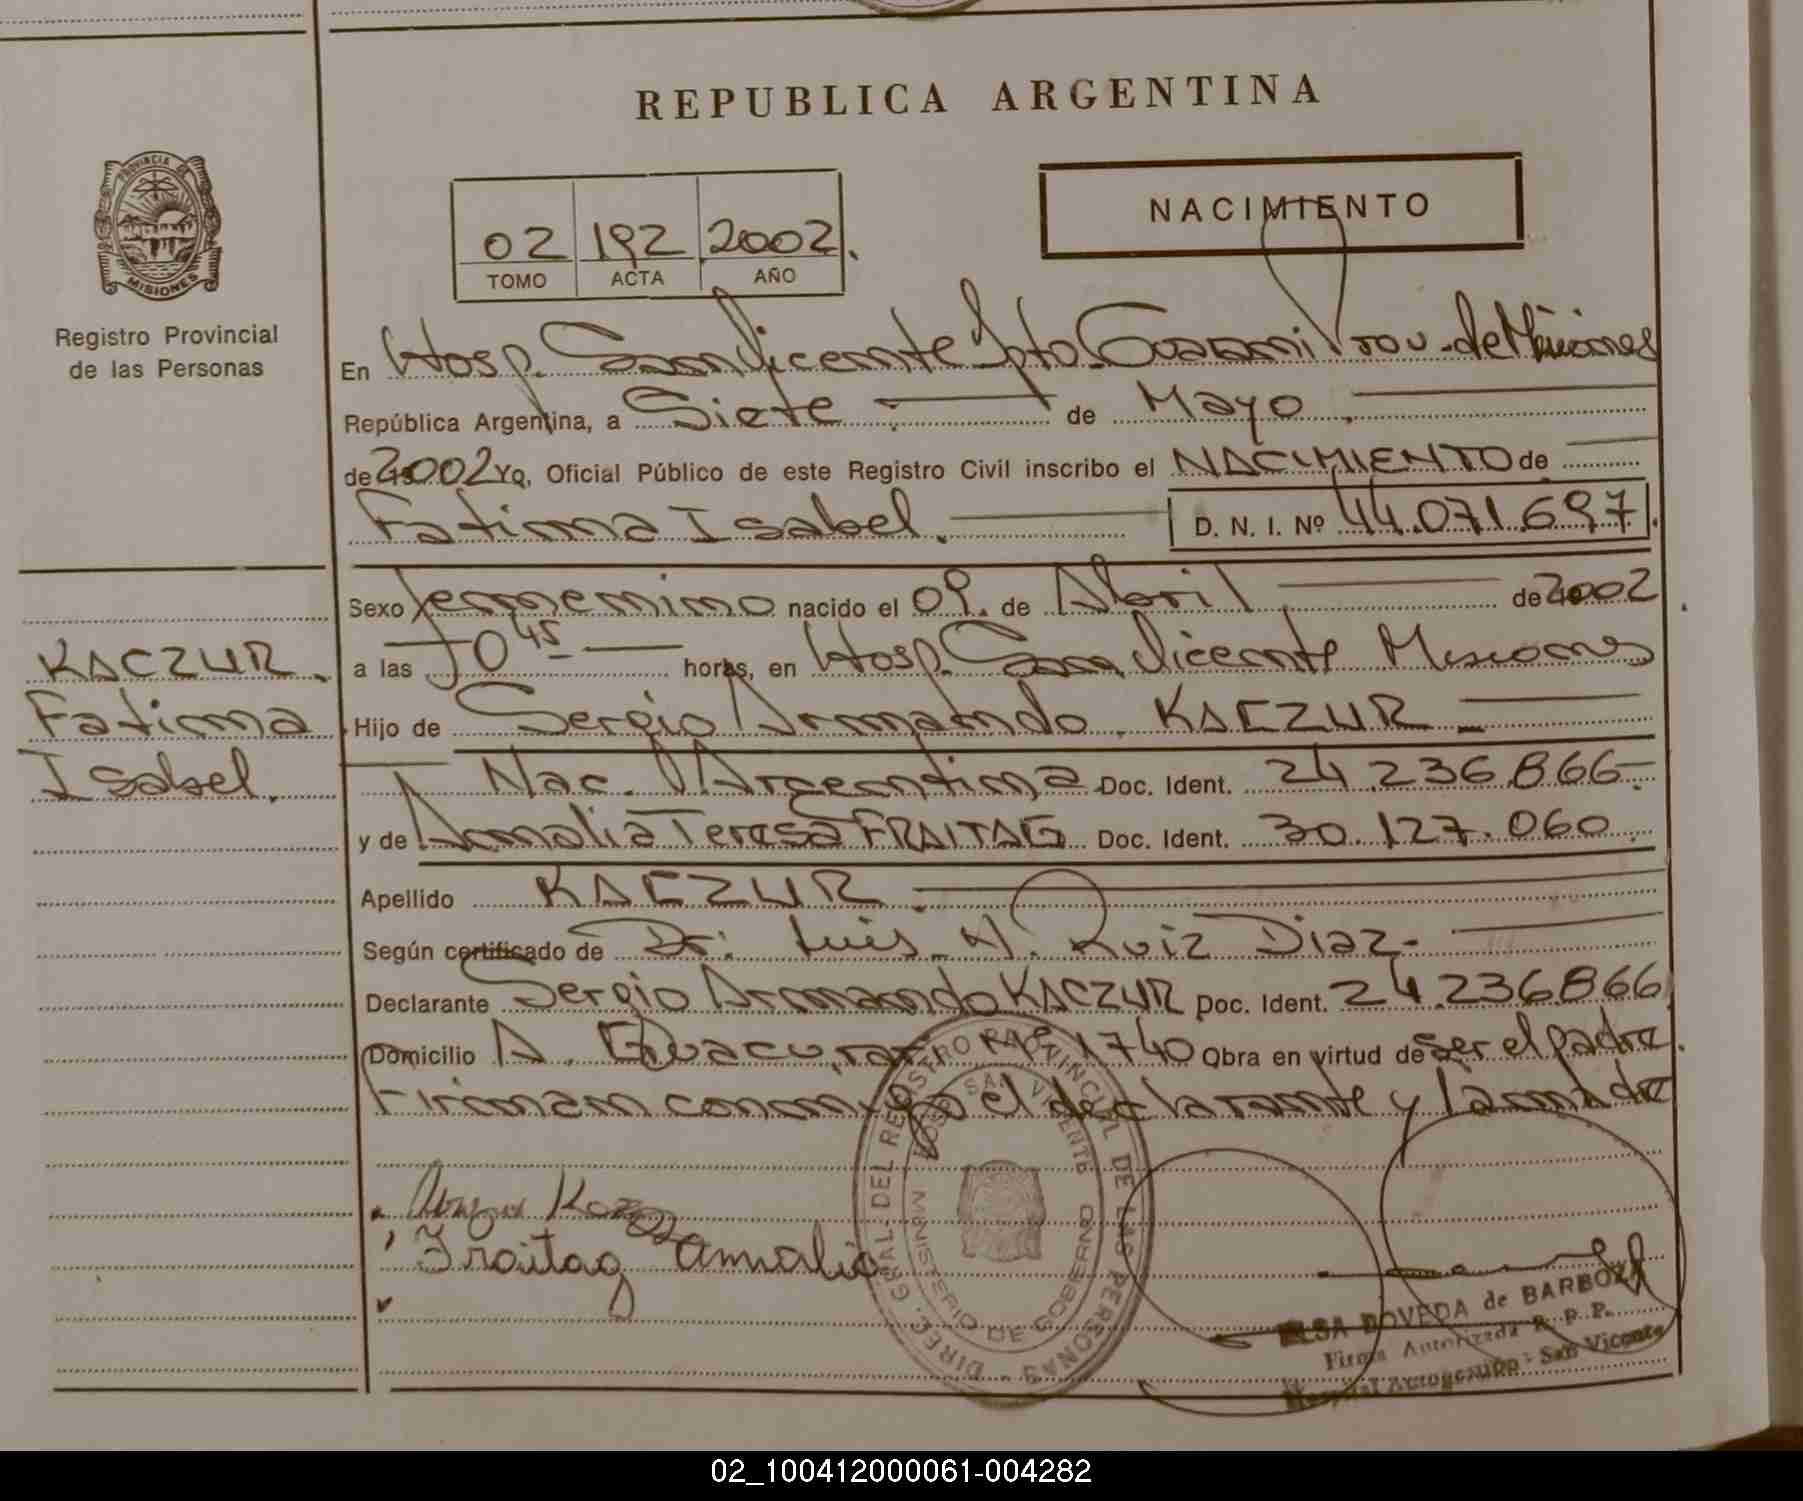 REPUBLICA ARGENTINA
PROVINCIA DE MISIONES
Registro Provincial
de las Personas
02 192 2002.
TOMO ACTA AÑO
NACIMIENTO
En Hosp. San Vicente Dpto. Guarani Prov. de Misiones
República Argentina, a Siete de Mayo
de 2002 Yo, Oficial Público de este Registro Civil inscribo el NACIMIENTO de
Fatima Isabel. D. N. I. Nº 44.071.697.
Sexo femenino nacido el 09. de Abril de 2002
a las 10 45 horas, en Hosp. San Vicente Misiones
Hijo de Sergio Armando KACZUR
Nac. Argentina Doc. Ident. 24.236.866
y de Amalia Teresa FRAITAG Doc. Ident. 30.127.060
Apellido KACZUR
Según certificado de Dr: Luis A. Ruiz Diaz
Declarante Sergio Armando KACZUR Doc. Ident. 24.236.866
Domicilio A. Guacurari 1740 Obra en virtud de ser el padre.
Firman conmigo el declarante y la madre
KACZUR.
Fatima
Isabel.
Fraitag Amalia
DIREC. GRAL. DEL REGISTRO PROVINCIAL DE LAS PERSONAS
HOSP. SAN VICENTE
MINISTERIO DE GOBIERNO
ELSA BOVEDA de BARBOZA
Firma Autorizada R. P. P.
Hospital Autogestión - San Vicente
02_100412000061-004282